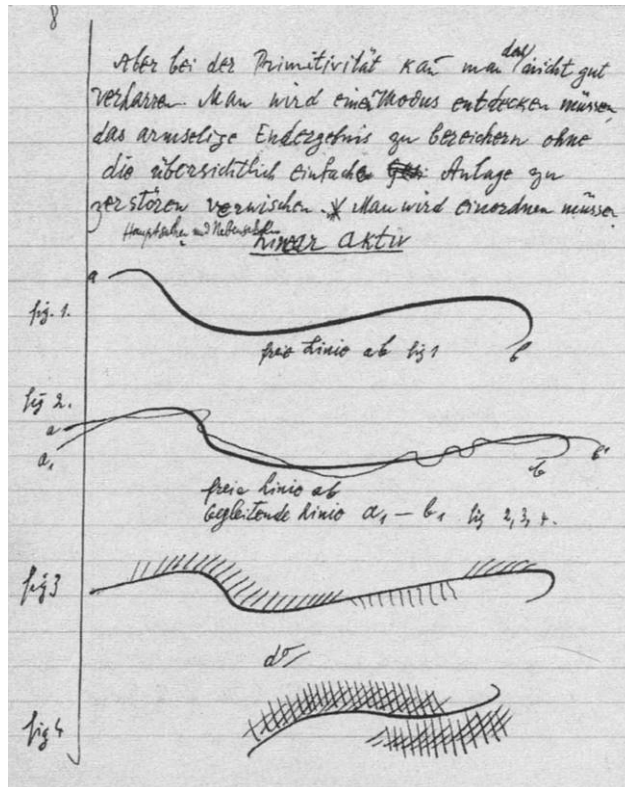 8
Aber bei der Primitivität kañ man doch nicht gut
verharren. Man wird einen Modus entdecken müssen
das armselige Endergebnis zu bereichern ohne
die übersichtlich einfache Anlage zu
zerstören verwischen. Man wird einordnen müssen
Hauptsachen und Nebensachen
Linear aktiv
a
fig. 1.
freie Linie ab fig 1
b
fig 2.
a
a₁
b
b¹
freie Linie ab
begleitende Linie a₁ – b₁ fig 2, 3, 4.
fig 3
dº
fig 4